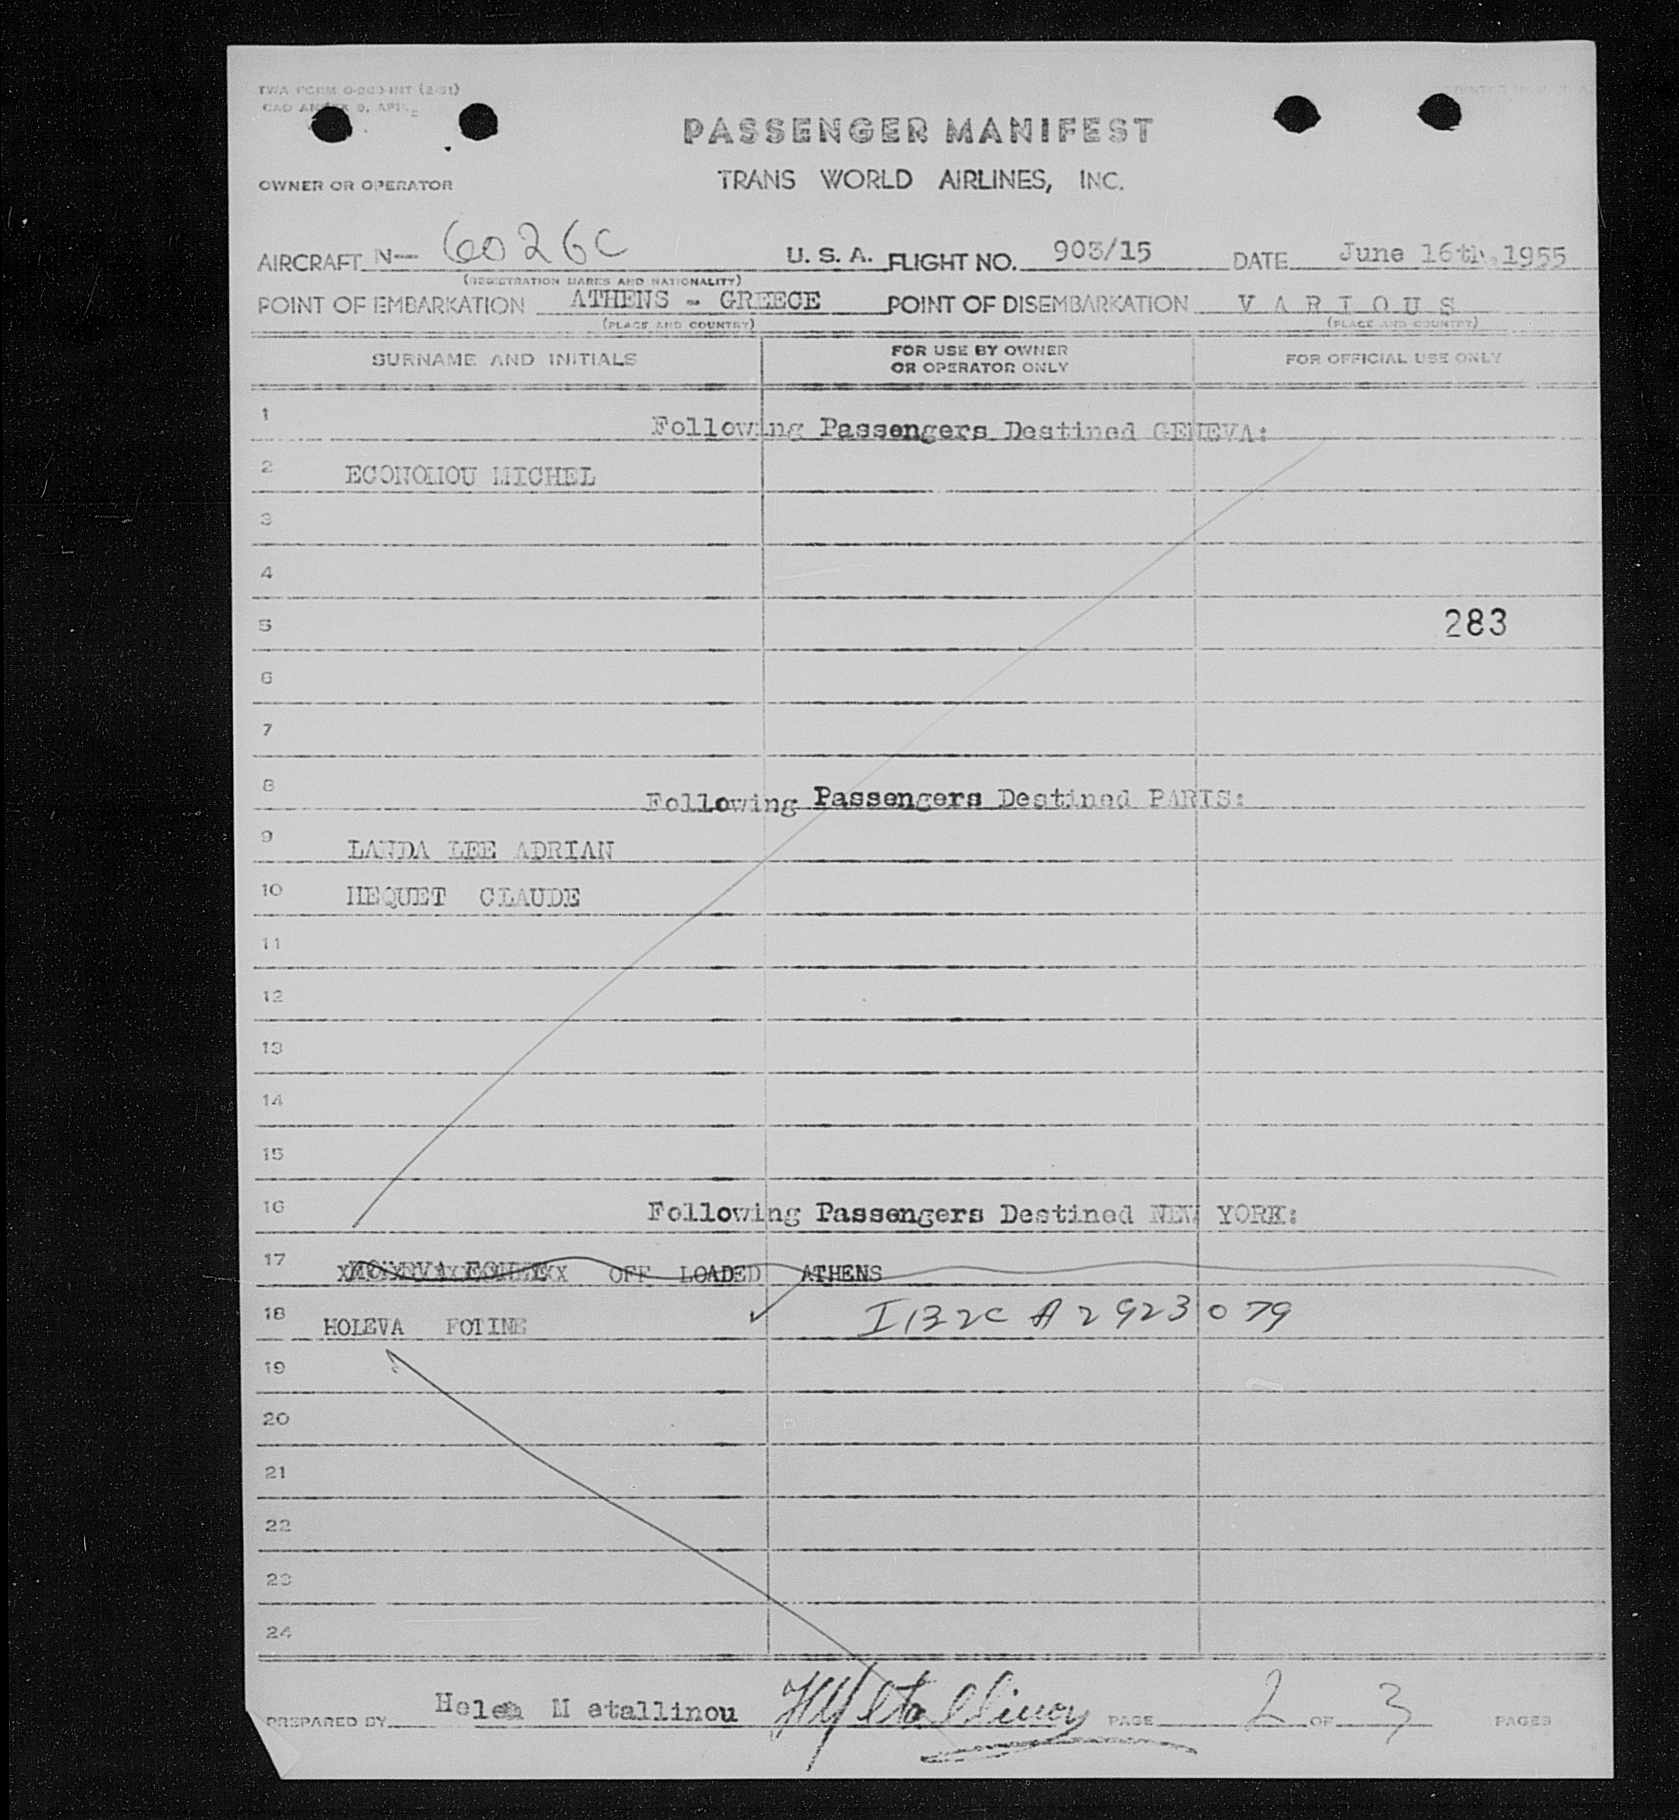 TWA FORM 0-203-INT (2-51)
OWNER OR OPERATOR
PASSENGER MANIFEST
TRANS WORLD AIRLINES, INC.
AIRCRAFT N— 6026C U. S. A. FLIGHT NO. 903/15 DATE June 16th, 1955
(REGISTRATION MARKS AND NATIONALITY)
POINT OF EMBARKATION ATHENS - GREECE POINT OF DISEMBARKATION V A R I O U S
(PLACE AND COUNTRY) (PLACE AND COUNTRY)
SURNAME AND INITIALS FOR USE BY OWNER OR OPERATOR ONLY FOR OFFICIAL USE ONLY
1 Following Passengers Destined GENEVA:
2 ECONOMOU MICHEL
3
4
5 283
6
7
8 Following Passengers Destined PARIS:
9 LANDA LEE ADRIAN
10 HEQUET CLAUDE
11
12
13
14
15
16 Following Passengers Destined NEW YORK:
17 OFF LOADED ATHENS
18 HOLEVA FOTINE ✓ I132C A2923079
19
20
21
22
23
24
PREPARED BY Helen Metallinou HMetallinou PAGE 2 OF 3 PAGES